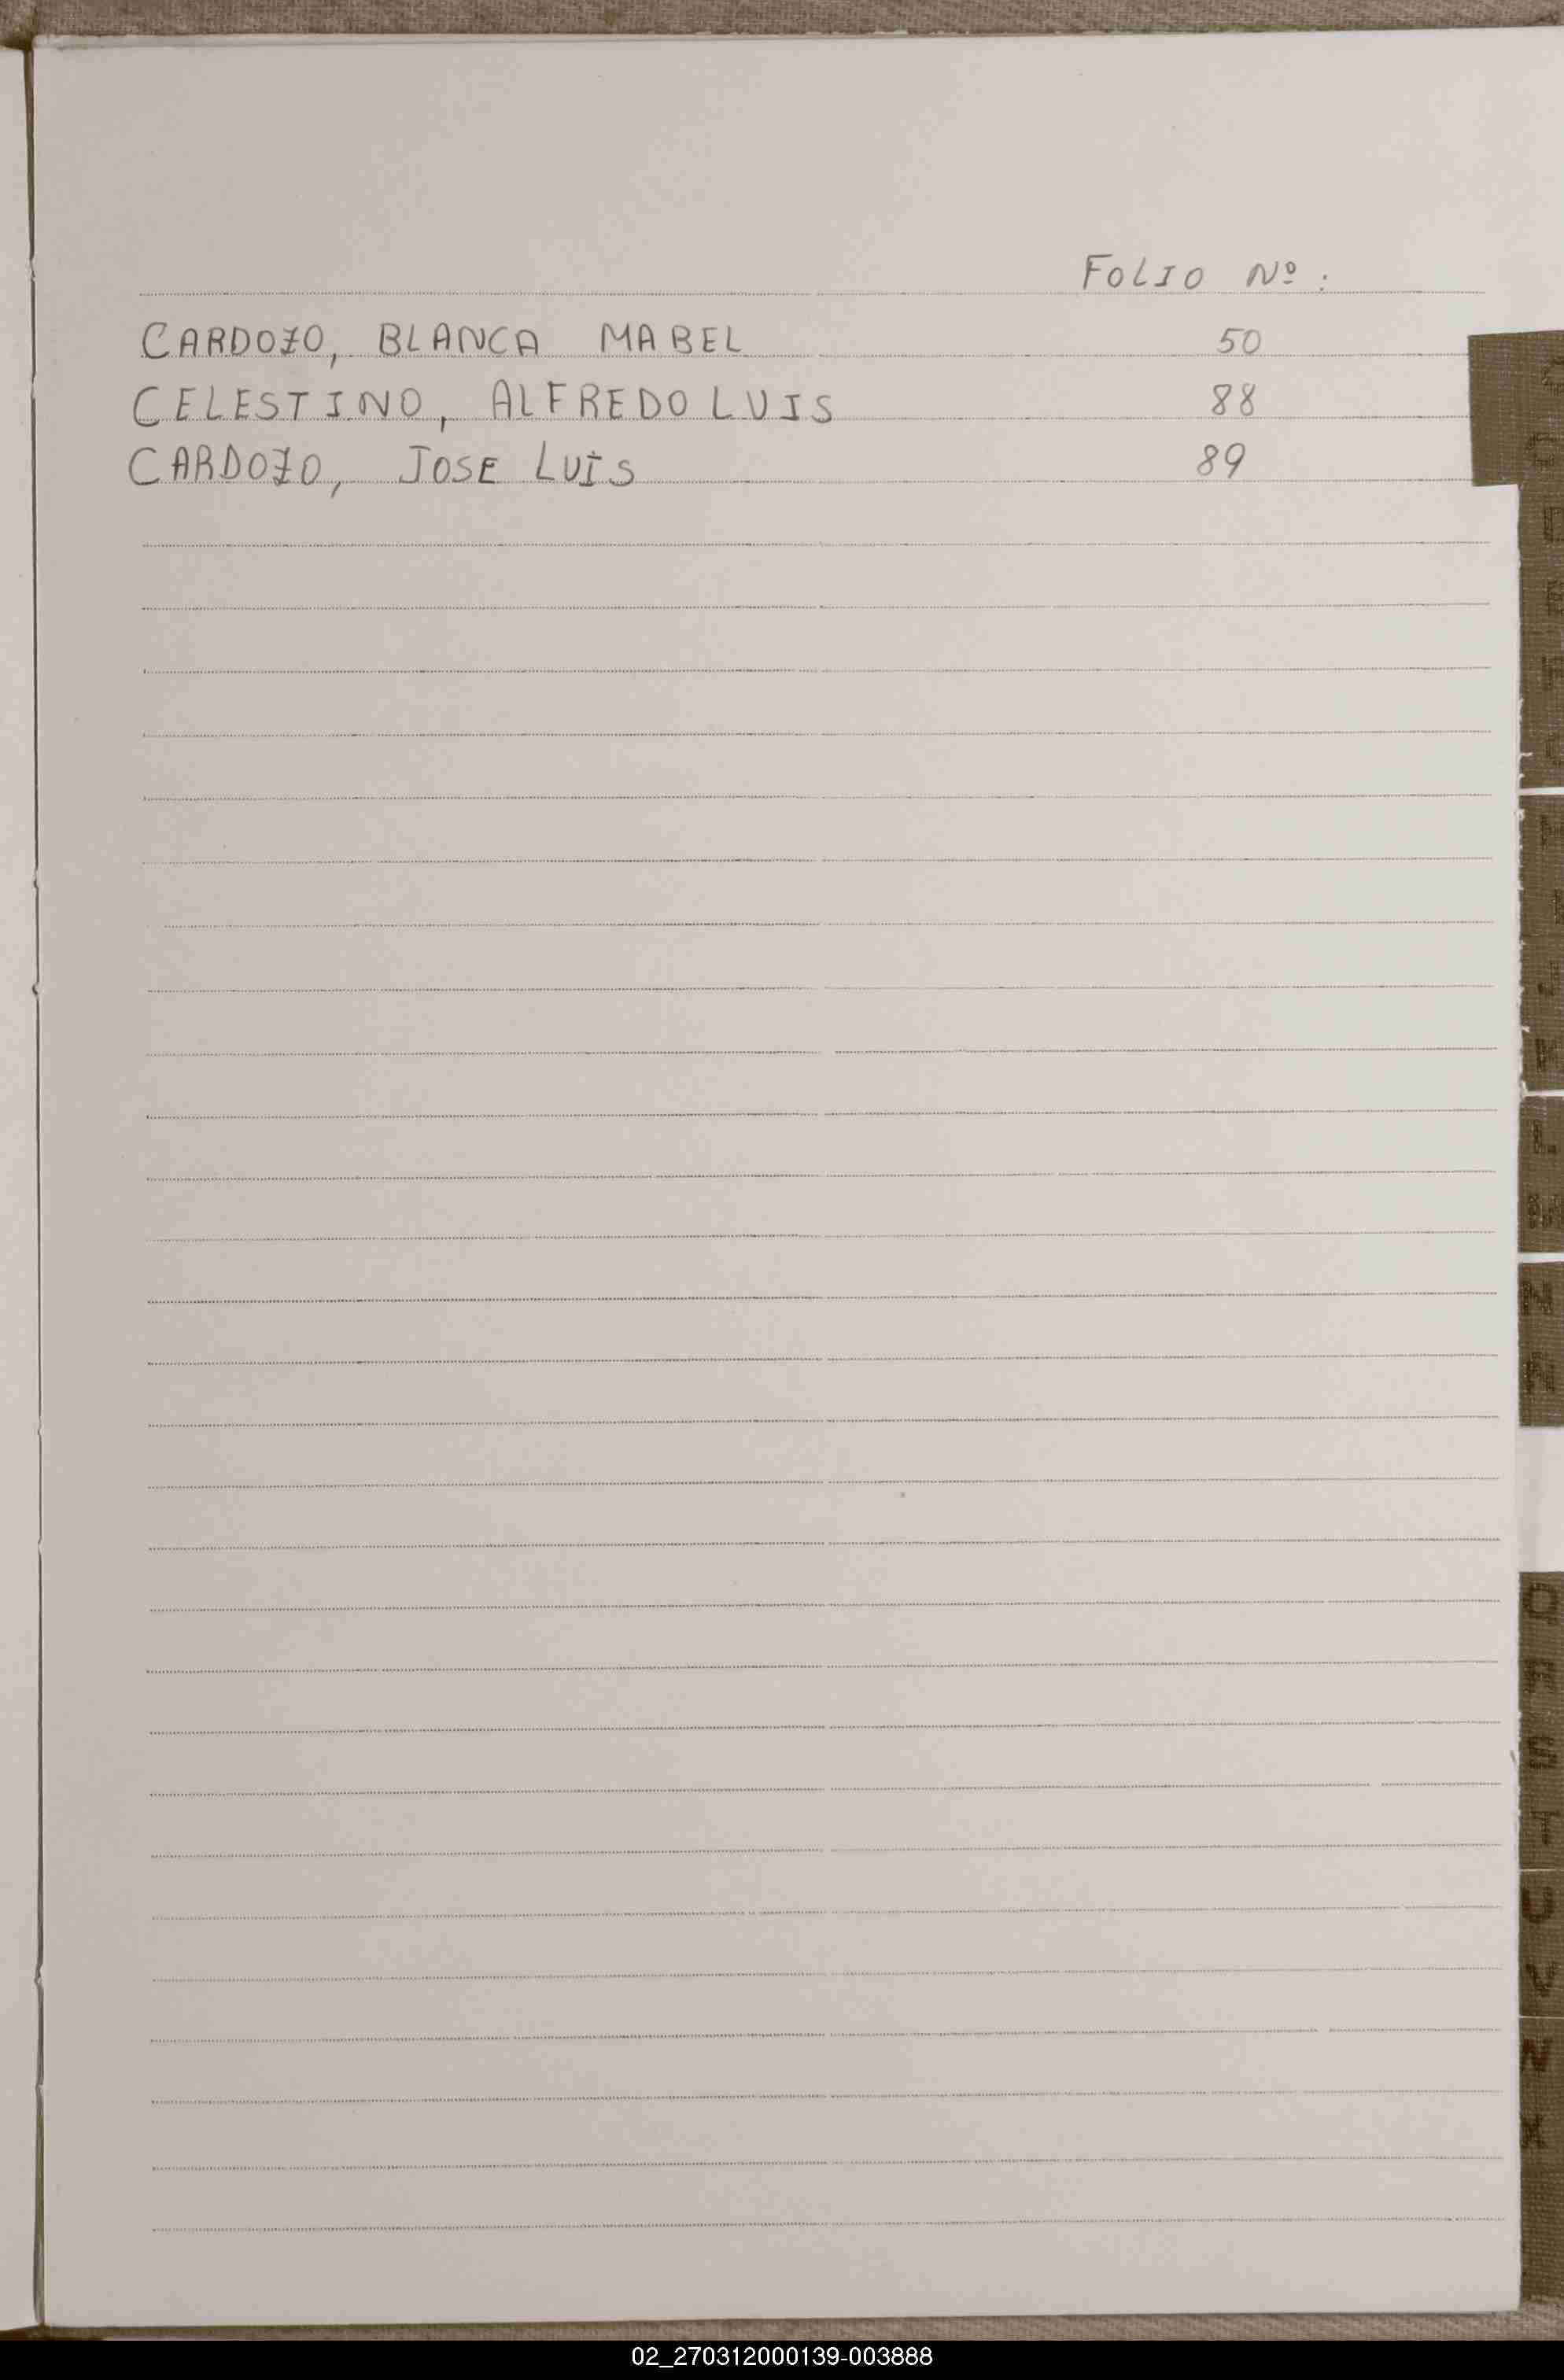 FOLIO Nº:
CARDOZO, BLANCA MABEL 50
CELESTINO, ALFREDO LUIS 88
CARDOZO, JOSE LUIS 89
02_270312000139-003888